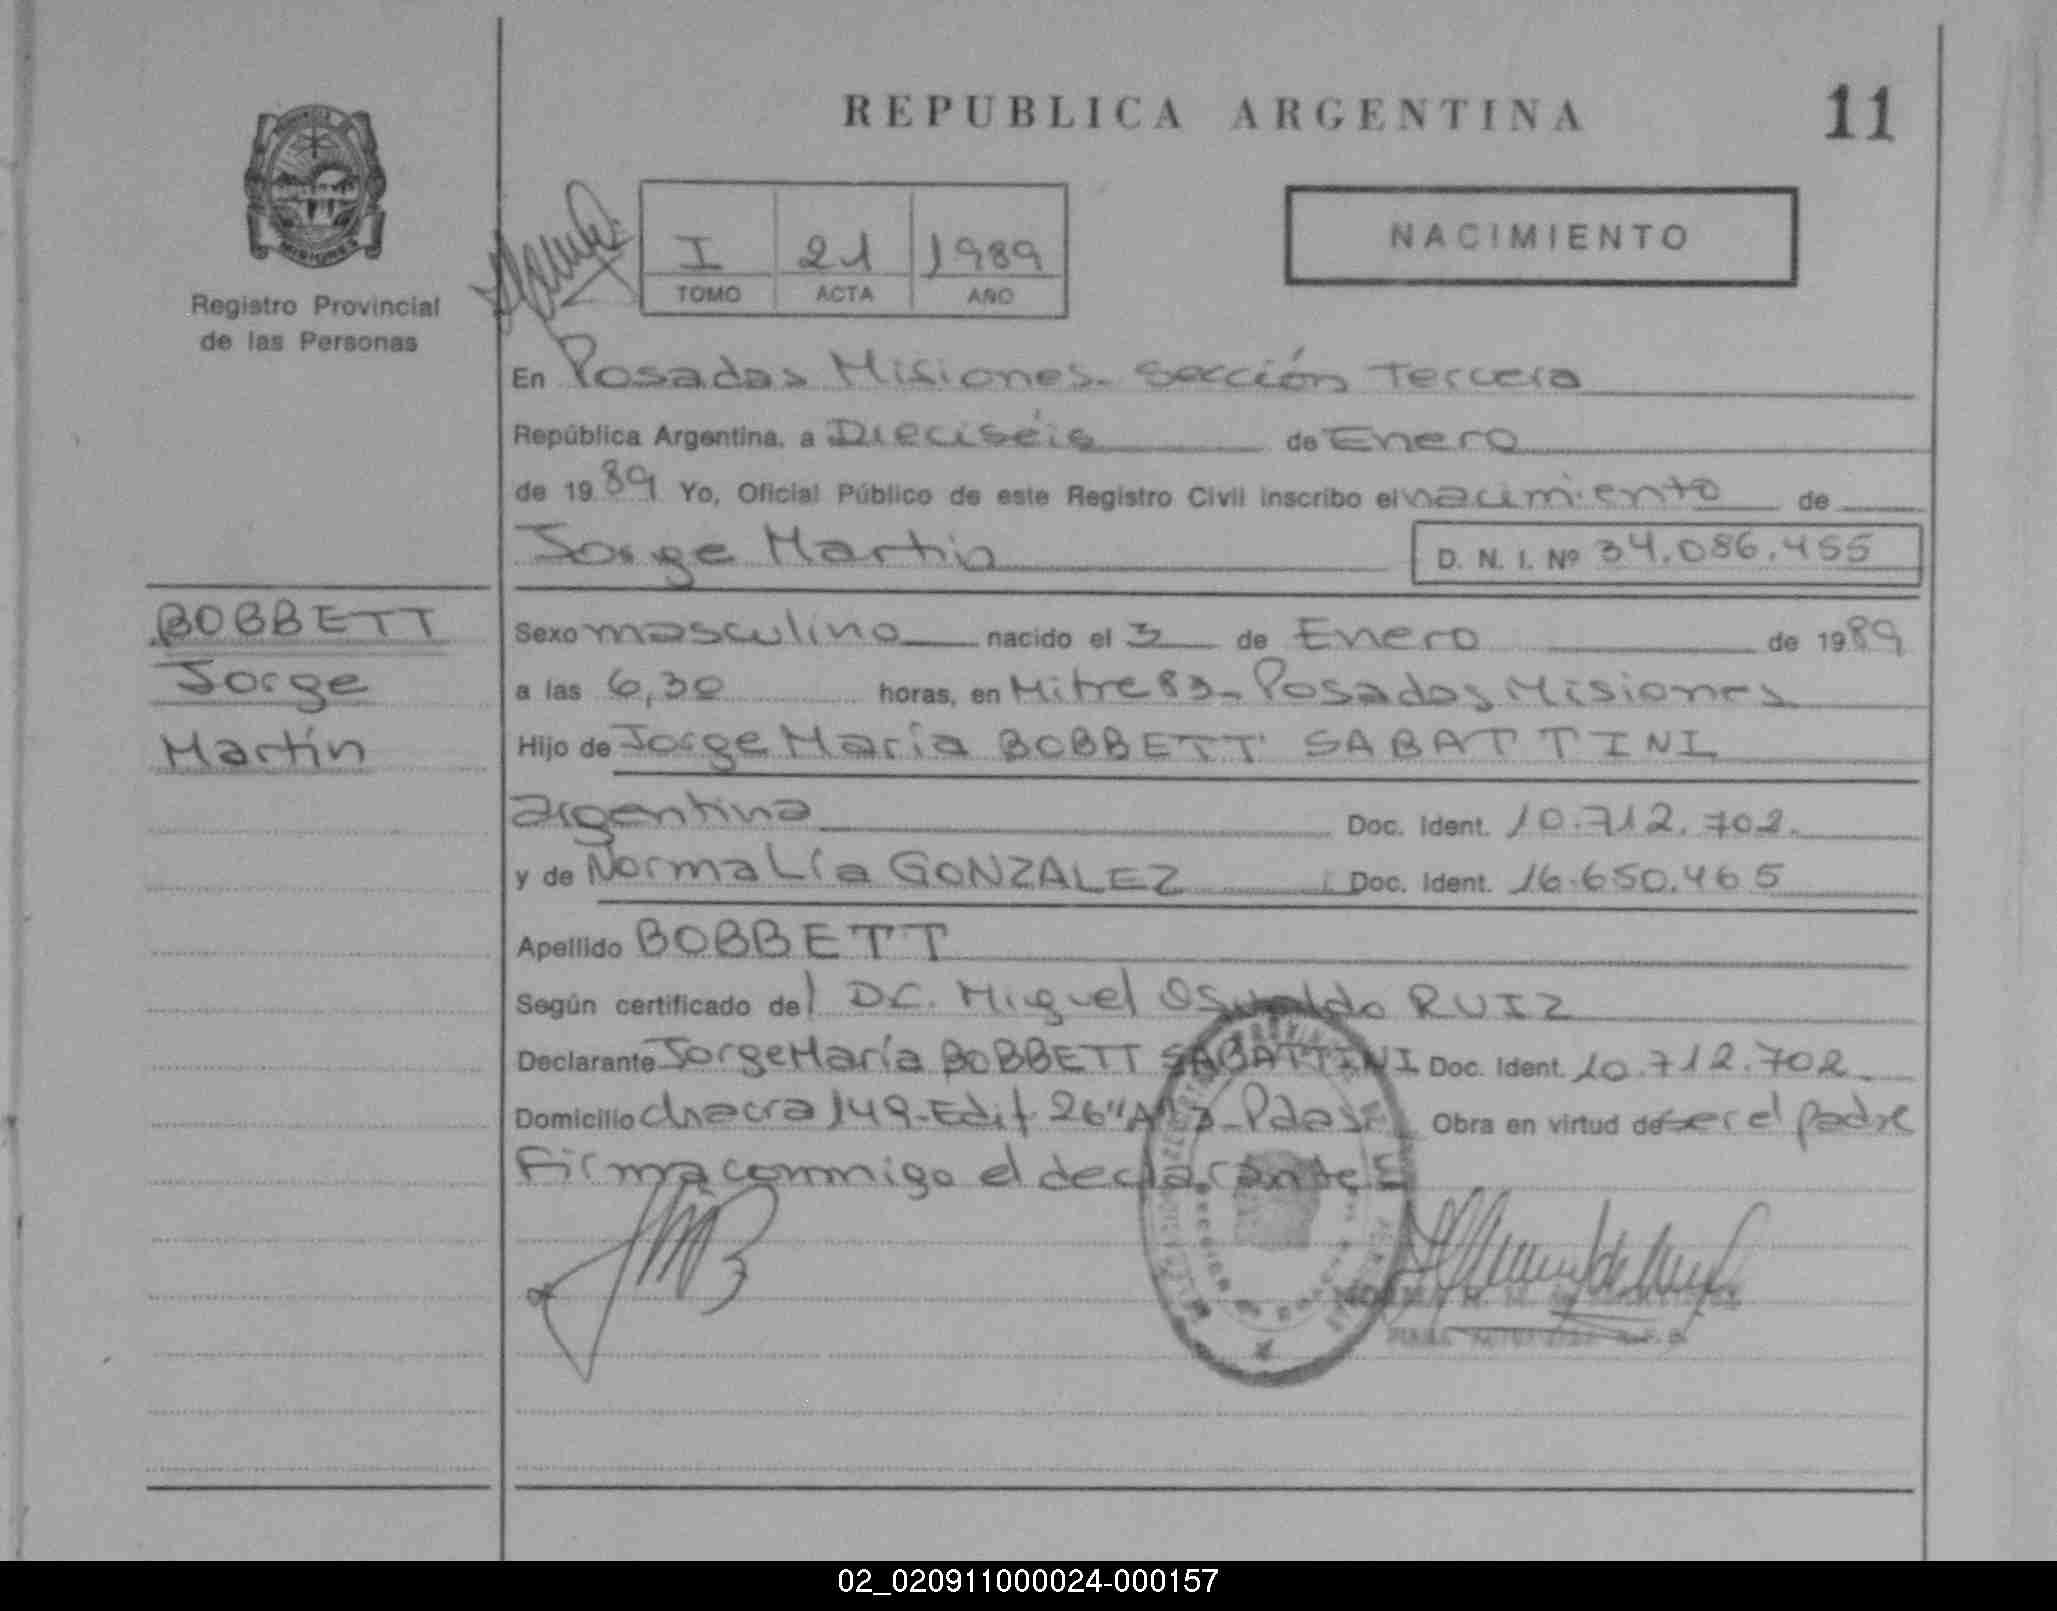 REPUBLICA ARGENTINA
11
MISIONES
Registro Provincial
de las Personas
I 21 1989
TOMO ACTA AÑO
NACIMIENTO
En Posadas Misiones. Sección Tercera
República Argentina, a Dieciséis de Enero
de 1989 Yo, Oficial Público de este Registro Civil inscribo el nacimiento de
Jorge Martin
D. N. I. Nº 34.086.455
BOBBETT
Jorge
Martín
Sexo masculino nacido el 3 de Enero de 1989
a las 6,30 horas, en Mitre 83- Posadas Misiones
Hijo de Jorge María BOBBETT SABATTINI
argentina Doc. Ident. 10.712.702.
y de Norma Lía GONZALEZ Doc. Ident. 16.650.465
Apellido BOBBETT
Según certificado del Dr. Miguel Osvaldo RUIZ
Declarante Jorge María BOBBETT SABATTINI Doc. Ident. 10.712.702.
Domicilio chacra 149-Edif. 26 "A" 3-Pdas Obra en virtud de ser el padre
Firma conmigo el declarante
02_020911000024-000157